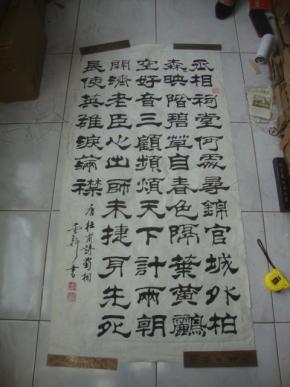 丞相祠堂何處尋錦官城外柏
森映階碧草自春色隔葉黃鸝
空好音三顧頻煩天下計兩朝
開濟老臣心出師未捷身先死
長使英雄淚滿襟
唐杜甫詩蜀相
書